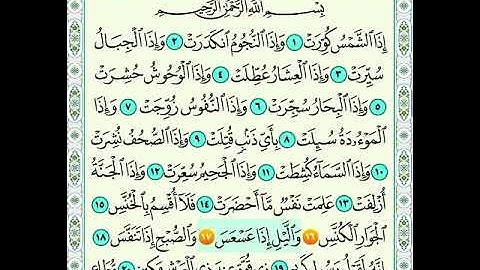 بِسْمِ ٱللَّهِ ٱلرَّحْمَٰنِ ٱلرَّحِيمِ
إِذَا ٱلشَّمْسُ كُوِّرَتْ ١ وَإِذَا ٱلنُّجُومُ ٱنكَدَرَتْ ٢ وَإِذَا ٱلْجِبَالُ
سُيِّرَتْ ٣ وَإِذَا ٱلْعِشَارُ عُطِّلَتْ ٤ وَإِذَا ٱلْوُحُوشُ حُشِرَتْ
٥ وَإِذَا ٱلْبِحَارُ سُجِّرَتْ ٦ وَإِذَا ٱلنُّفُوسُ زُوِّجَتْ ٧ وَإِذَا
ٱلْمَوْءُۥدَةُ سُئِلَتْ ٨ بِأَيِّ ذَنۢبٍ قُتِلَتْ ٩ وَإِذَا ٱلصُّحُفُ نُشِرَتْ
١٠ وَإِذَا ٱلسَّمَآءُ كُشِطَتْ ١١ وَإِذَا ٱلْجَحِيمُ سُعِّرَتْ ١٢ وَإِذَا ٱلْجَنَّةُ
أُزْلِفَتْ ١٣ عَلِمَتْ نَفْسٌ مَّآ أَحْضَرَتْ ١٤ فَلَآ أُقْسِمُ بِٱلْخُنَّسِ ١٥
ٱلْجَوَارِ ٱلْكُنَّسِ ١٦ وَٱلَّيْلِ إِذَا عَسْعَسَ ١٧ وَٱلصُّبْحِ إِذَا تَنَفَّسَ ١٨